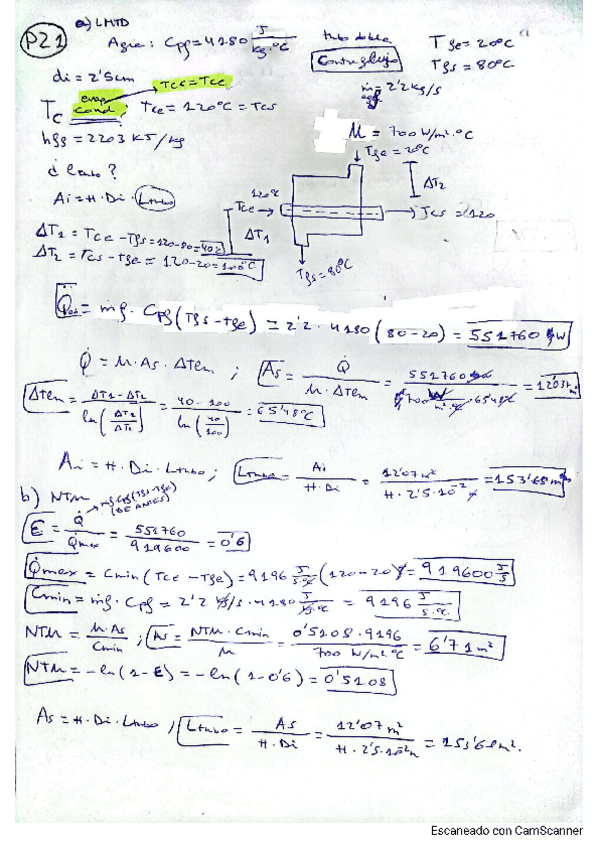 P21
a) LMTD
Agua: Cpf = 4180 J/kg·ºC
tubo doble
Tfe = 20ºC
Contraflujo
Tfs = 80ºC
di = 2'5cm
Tcs = Tce
ṁf = 2'2 kg/s
agua
Tc
evap
cond
Tce = 120ºC = Tcs
hfg = 2203 KJ/kg
U = 700 W/m²·ºC
Tfe = 20ºC
¿ Ltubo?
ΔT2
Ai = π · Di · Ltubo
120ºC
Tce
Tcs = 120
ΔT1
ΔT1 = Tce - Tfs = 120-80 = 40ºC
ΔT2 = Tcs - Tfe = 120-20 = 100ºC
Tfs = 80ºC
= ṁf · Cpf (Tfs - Tfe) = 2'2 · 4180 (80-20) = 551760 W
Q̇ = U · As · ΔTem ; As = Q̇ / U · ΔTem = 551760 / 700 W/m²·ºC · 65'48ºC = 12'037 m²
ΔTem = ΔT1 - ΔT2 / ln(ΔT1/ΔT2) = 40-100 / ln(40/100) = 65'48ºC
Ai = π · Di · Ltubo ; Ltubo = Ai / π · Di = 12'07 m² / π · 2'5·10⁻² = 153'65m
b) NTU
ṁf·Cpf (Tfs-Tfe)
(DE ANTES)
Ɛ = Q̇ / Q̇max = 551760 / 919600 = 0'6
Q̇max = Cmin (Tce - Tfe) = 9196 J/s·ºC (120-20) = 919600 J/s
Cmin = ṁf · Cpf = 2'2 kg/s · 4180 J/kg·ºC = 9196 J/s·ºC
NTU = U·As / Cmin ; As = NTU · Cmin / U = 0'5108 · 9196 / 700 W/m²·ºC = 6'71 m²
NTU = -ln(1-Ɛ) = -ln(1-0'6) = 0'5108
As = π · Di · Ltubo ; Ltubo = As / π · Di = 12'07 m² / π · 2'5·10⁻²m = 153'6 m².
Escaneado con CamScanner